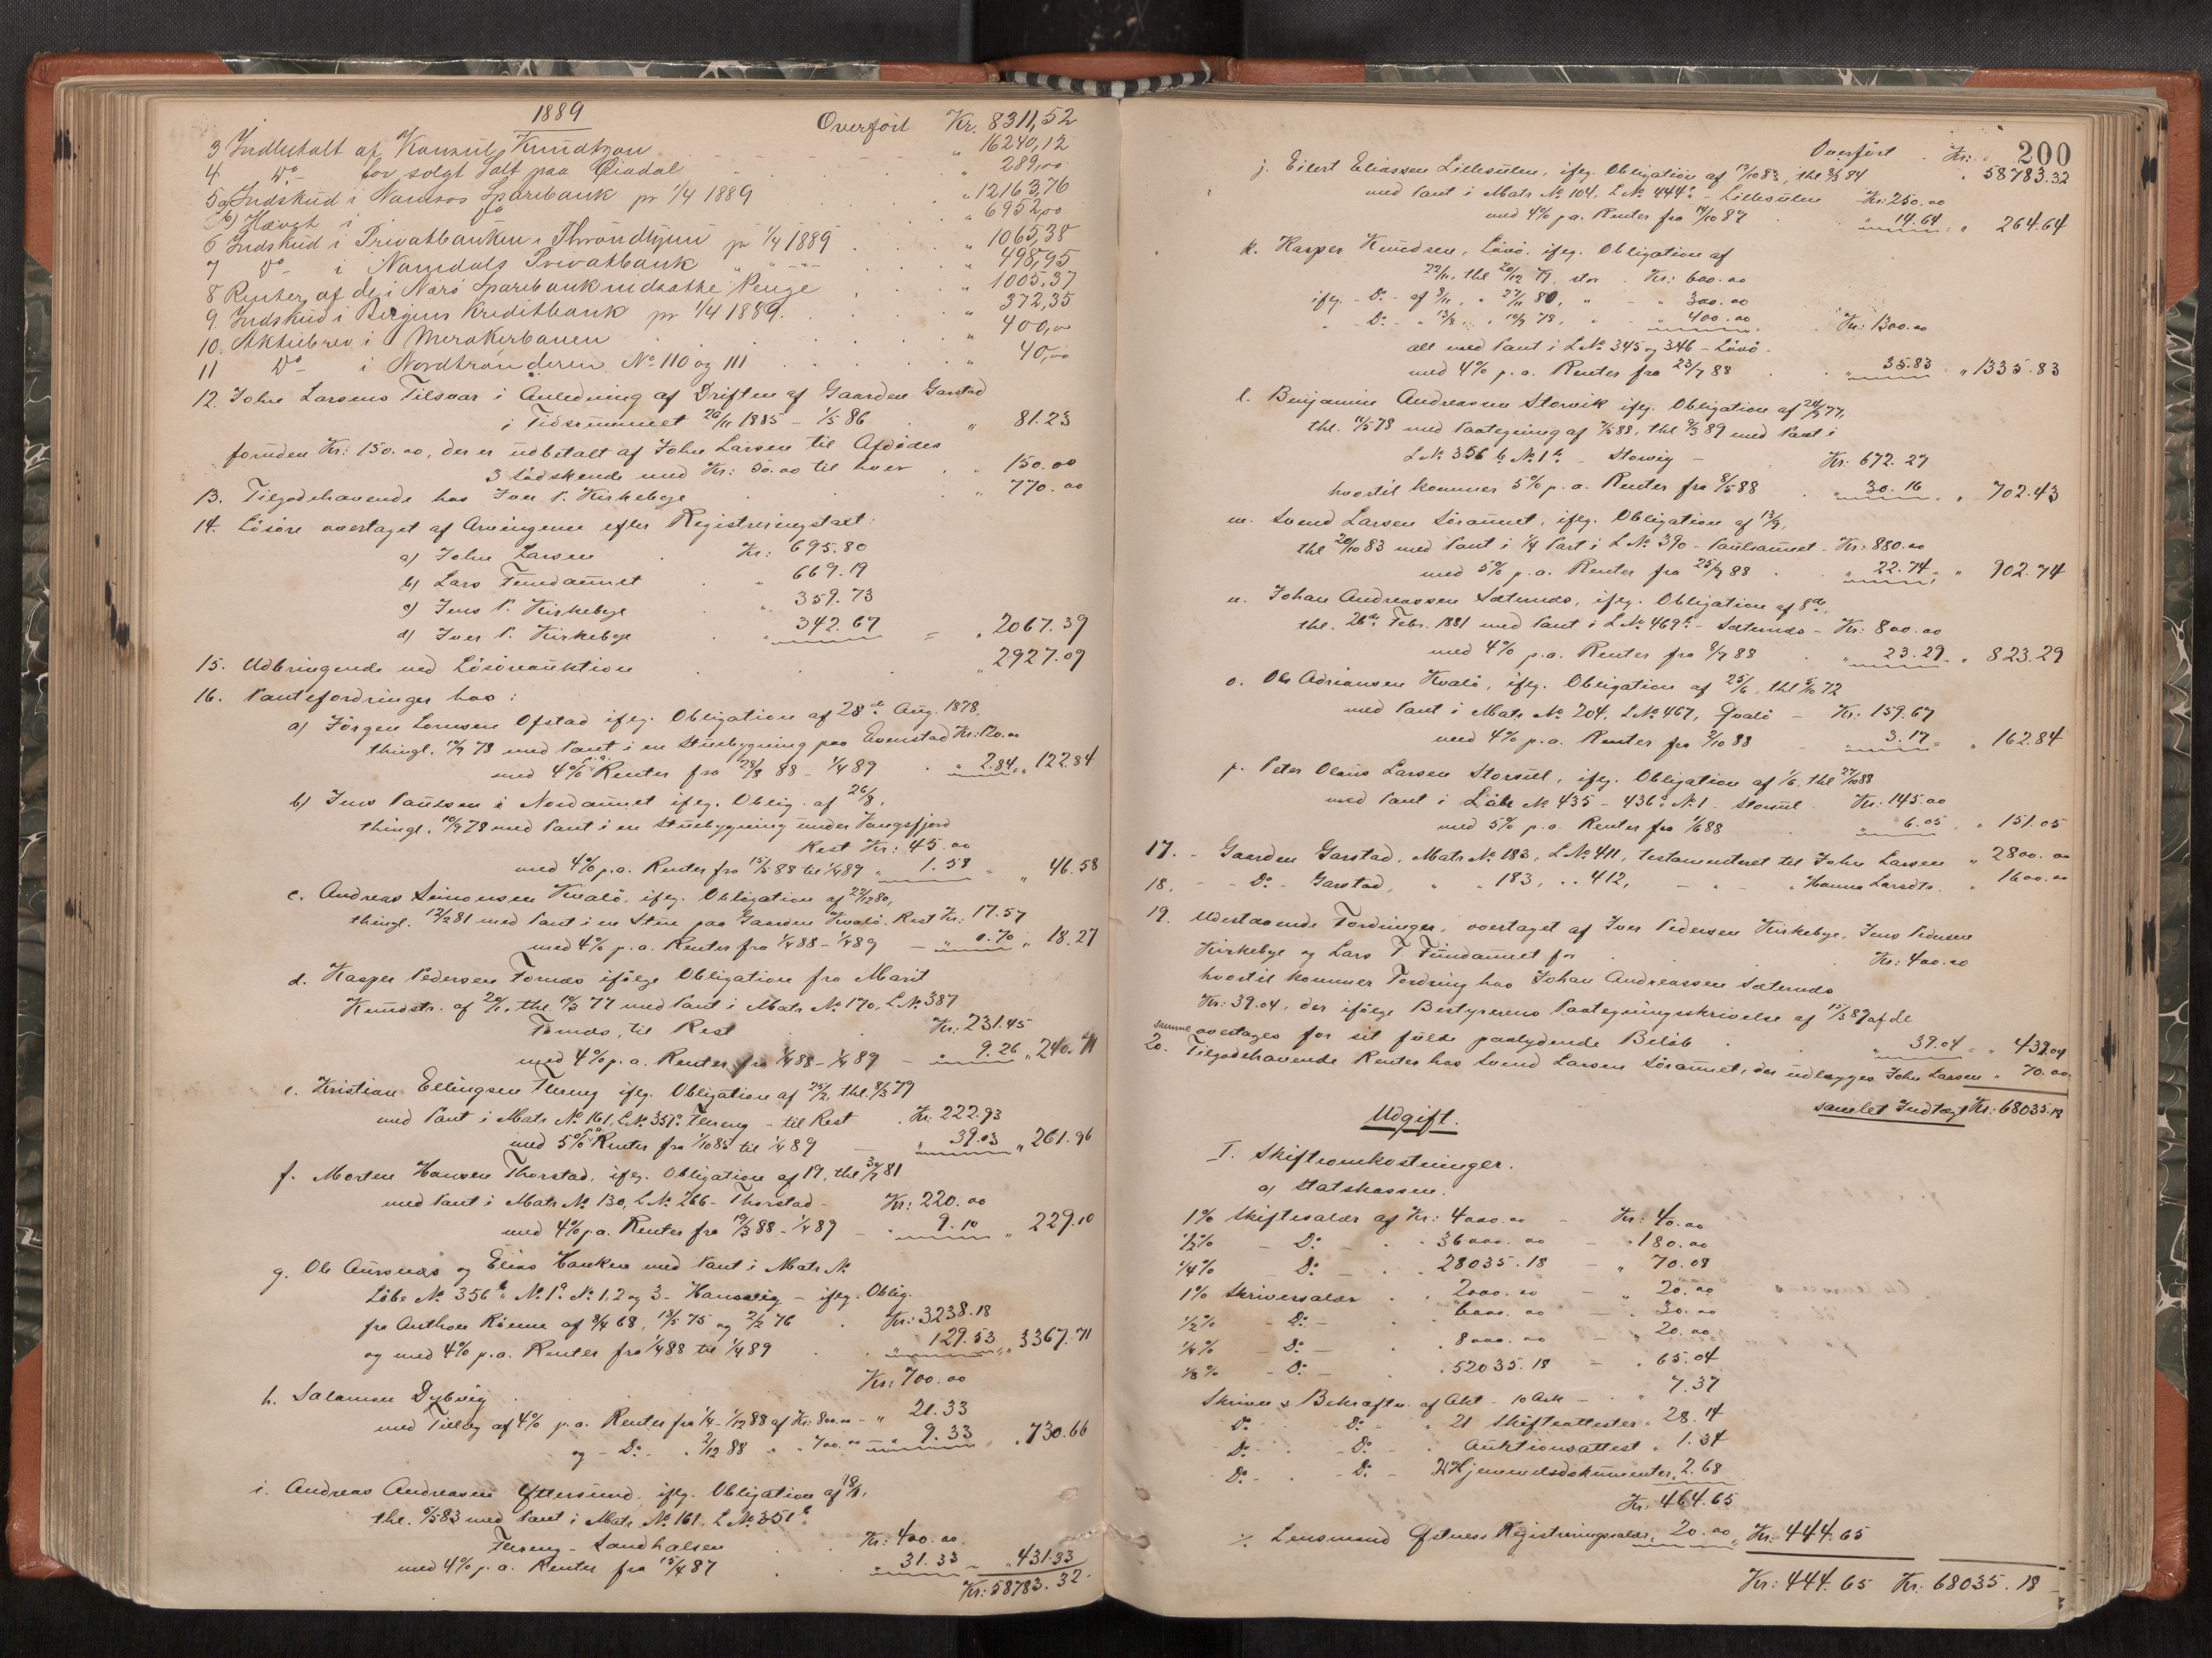 1889
Overført Kr. 8311,52
3 Indbetalt af Konsul Knudtzon " 16240,12
4 Do for solgt Salt paa " 289,00
5a Indskud i Namsos Sparebank pr 1/4 1889 " 12163,76
b) Hævet i Do " 6952,00
6 Indskud i Privatbanken i Throndhjem pr 1/4 1889 " 1065,38
7 Do i Namdals Privatbank " " " 498,95
8 Renter af de i Nærö Sparebank indsatte Penge " 1005,37
9. Indskud i Bergens Kreditbank pr 1/4 1889. " 372,35
10. Aktiebrev i Merakerbanen " 400,00
11 Do i Nordtrönderen No 110 og 111 " 40,00
12. John Larsens Tilsvar i Anledning af Driften af Gaarden Garstad
i Tidsrummet 26/11 1885 - 1/5 86 " 81.23
foruden Kr: 150.00, der er udbetalt af John Larsen til Afdødes
3 Sødskende med Kr: 50.00 til hver " 150.00
13. Tilgodehavende hos Iver P. Kirkebye " 770.00
14. Lösöre overtaget af Arvingerne efter Registreringstaxt:
a) John Larsen Kr: 695.80
b) Lars Findaunet " 669.19
c) Jens P. Kirkebye " 359.73
d) Iver P. Kirkebye " 342.67 = " 2067.39
15. Udbringende ved Lösöreauktion " 2927.09
16. Pantefordringer hos:
a) Jörgen Lornsen Ofstad ifg. Obligation af 28de Aug. 1878,
thingl. 10/9 78 med Pant i en Stuebygning paa Evenstad Kr: 120.00
med 4% p.a. Renter fra 28/8 88 - 1/4 89 " 2.84 " 122.84
b) Jens Paulsen i Nordaunet ifg. Oblig. af 26/8,
thingl. 10/9 78 med Pant i en Stuebygning under Vangsfjord
Rest Kr: 45.00
med 4% p.a. Renter fra 15/5 88 til 1/4 89 " 1.58 " 46.58
c. Andreas Simonsen Kvalö, ifg. Obligation af 22/12 80,
thingl. 12/2 81 med Pant i en Stue paa Gaarden Kvalö. Rest Kr: 17.57
med 4% p.a. Renter fra 1/4 88 - 1/4 89 - " 0.70 " 18.27
d. Kasper Pedersen Fornæs ifölge Obligation fra Marit
Knudstr. af 20/1, thl. 10/3 77 med Pant i Matr No 170, L.No 387
Fornæs, til Rest Kr: 231.45
med 4% p.a. Renter fra 1/4 88 - 1/4 89 - " 9.26 " 240.71
e. Kristian Ellingsen Flereng ifg. Obligation af 25/2, thl. 8/3 79
med Pant i Matr No 161, L.No 351a Flereng - til Rest Kr: 222.93
med 5% p.a. Renter fra 1/10 85 til 1/4 89 " 39.03 " 261.96
f. Morten Hansen Thorstad, ifg. Obligation af 19, thl 30/7 81
med Pant i Matr No 130, L.No 266 - Thorstad Kr: 220.00
med 4% p.a. Renter fra 19/3 88 - 1/4 89 - " 9.10 " 229.10
g. Ole Aursnæs og Elias Hanken med Pant i Matr No
Löbe No 356b No 1a No 1, 2 og 3 - Hansvig - ifg. Oblig.
fra Anthon Rönne af 8/4 68, 18/5 75 og 2/2 76 Kr: 3238.18
og med 4% p.a. Renter fra 1/4 88 til 1/4 89 " 129.53 " 3367.71
h. Salamon Dybvig Kr: 700.00
med Tillæg af 4% p.a. Renter fra 1/4 - 1/12 88 af Kr. 800.00 - " 21.33
og - Do. " 2/12 88 " " 700.00 " 9.33 " 730.66
i. Andreas Andreasen Yttersund, ifg. Obligation af 18/1,
thl. 5/5 83 med Pant i Matr No 161, L.No 351b
Flereng - Sandhalsen Kr: 400.00
med 4% p.a. Renter fra 15/4 87 " 31.33 " 431.33
Kr: 58783.32
200
Overført Kr: 58783.32
j. Eilert Eliassen Lillesulen, ifg. Obligation af 12/10 83, thl 8/3 84
med Pant i Matr No 104, L.No 444a - Lillesulen Kr: 250.00
med 4% p.a. Renter fra 14/10 87 " 14.64 = " 264.64
k. Kasper Knudsen, Lövö, ifg. Obligation af
22/11, thl 20/12 79, stor Kr: 600.00
ifg. - Do - af 8/11, " 27/11 80, " - " 300.00
" - Do - " 13/8, " 10/9 78, " - " 400.00 Kr: 1300.00
alt med Pant i L.No 345 og 346 - Lövö.
med 4% p.a. Renter fra 23/7 88 " 35.83 = " 1335.83
l. Benjamin Andreassen Storvik ifg. Obligation af 24/2 77,
thl. 11/5 78 med Paategning af 7/5 88, thl 9/3 89 med Pant i
L.No 356 b No 1b - Storvig - Kr: 672.27
hvortil kommer 5% p.a. Renter fra 8/5 88 " 30.16 = " 702.43
m. Svend Larsen Söraunet, ifg. Obligation af 13/9,
thl 20/10 83 med Pant i 1/4 Part i L.No 390 - Paulsaunet - Kr: 880.00
med 5% p.a. Renter fra 25/9 88 " 22.74 = " 902.74
n. Johan Andreassen Sæternæs, ifg. Obligation af 8de,
thl. 26de Febr. 1881 med Pant i L.No 469b - Sæternæs - Kr: 800.00
med 4% p.a. Renter fra 8/7 88 " 23.29 = " 823.29
o. Ole Adriansen Kvalö, ifg. Obligation af 25/6, thl 5/10 72
med Pant i Matr No 204, L.No 467, Qvalö - Kr: 159.67
med 4% p.a. Renter fra 2/10 88 " 3.17 = " 162.84
p. Peter Olaus Larsen Storsul, ifg. Obligation af 1/6, thl 27/10 88
med Pant i Löbe No 435 - 436a No 1 - Storsul Kr: 145.00
med 5% p.a. Renter fra 1/6 88 " 6.05 " 151.05
17. - Gaarden Garstad, Matr No 183, L.No 411, testamenteret til John Larsen " 2800.00
18. - Do - Garstad, " " 183, " " 412, - " - " Hanna Larsdtr. " 1600.00
19. Udestaaende Fordringer, overtaget af Iver Pedersen Kirkebye, Jens Pedersen
Kirkebye og Lars T. Findaunet for Kr: 400.00
hvortil kommer Fordring hos Johan Andreassen Sæternæs
Kr: 39.04, der ifölge Bestyrerens Paategningsskrivelse af 15/3 89 af de
samme overtages for sit fulde paalydende Belöb " 39.04 = " 439.04
20. Tilgodehavende Renter hos Svend Larsen Söraunet, der udlægges John Larsen " 70.00
samlet Indtægt Kr: 68035.18
Udgift.
I. Skifteomkostninger.
a) Statskassen.
1% Skiftesalær af Kr: 4000.00 - Kr: 40.00
1/2% - Do - " 36000.00 - " 180.00
1/4% - Do - " 28035.18 - " 70.08
1% Skriversalær " 2000.00 - " 20.00
1/2% - Do - " 6000.00 - " 30.00
1/4% - Do - " 8000.00 - " 20.00
1/8% - Do - " 52035.18 - " 65.04
Skriver & Bekræftn. af Akt - 10 Ark - " 7.37
Do - Do - " 21 Skifteattester " 28.14
Do - Do - " Auktionsattest " 1.34
Do - Do - 2 Hjemmelsdokumenter " 2.68
Kr. 464.65
÷ Lensmand Registreringssalær " 20.00 Kr: 444.65
Kr: 444.65 Kr. 68035.18